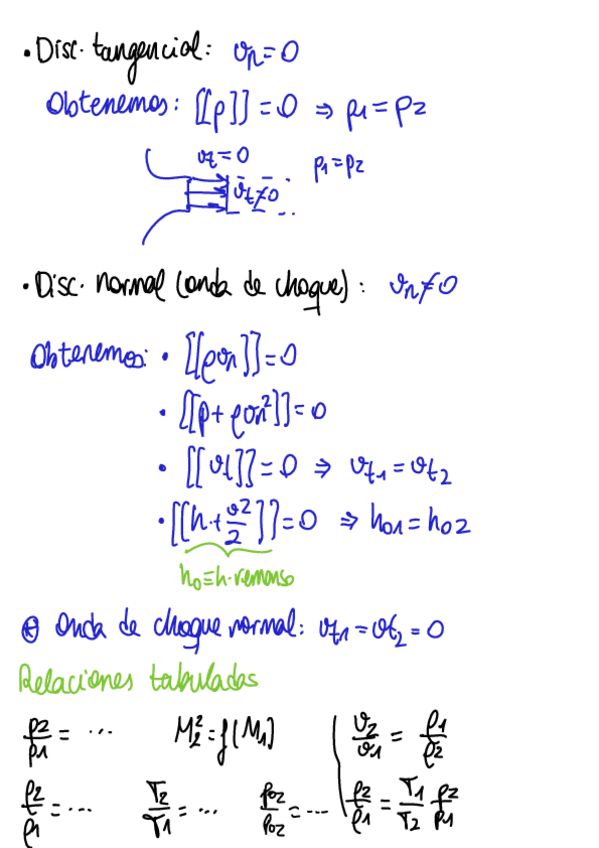 • Disc. tangencial: vn = 0
Obtenemos: [[p]] = 0 ⇒ p1 = p2
vt = 0
p1 = p2
vt ≠ 0
• Disc. normal (onda de choque): vn ≠ 0
Obtenemos: • [[ρvn]] = 0
• [[p + ρvn²]] = 0
• [[vt]] = 0 ⇒ vt1 = vt2
• [[h + v²/2]] = 0 ⇒ h01 = h02
h0 ≡ h. remanso
⊛ Onda de choque normal: vt1 = vt2 = 0
Relaciones tabuladas
p2/p1 = ... M2² = f(M1) v2/v1 = ρ1/ρ2
ρ2/ρ1 = ... T2/T1 = ... p02/p02 = ... ρ2/ρ1 = T1/T2 p2/p1